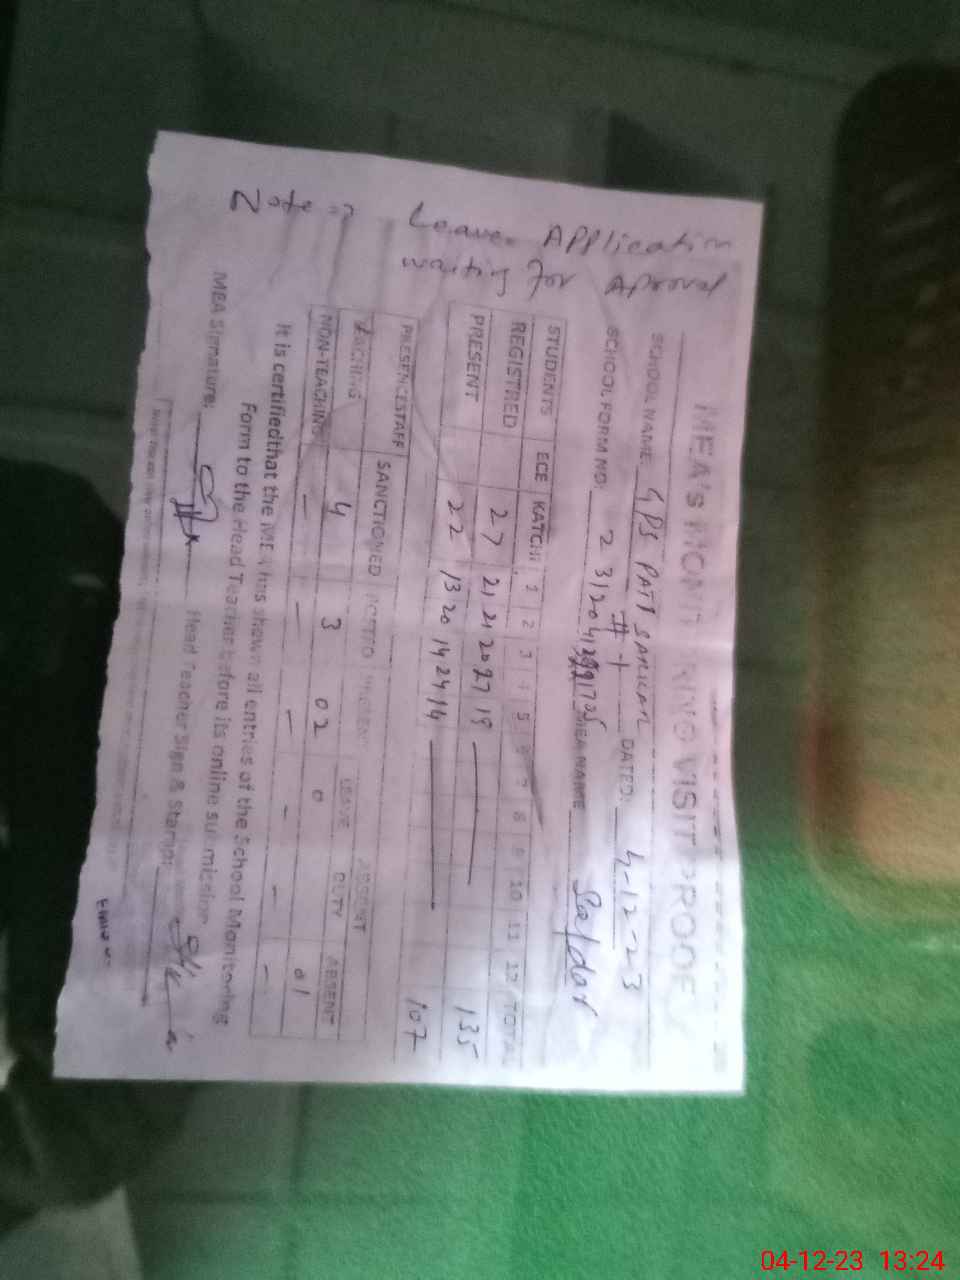 MEA's MONITORING VISIT PROOF
SCHOOL NAME: GPS PATI SARKAR #1 DATED: 4-12-23
SCHOOL FORM NO: MEA NAME Safdar
STUDENTS ECE KATCHI 1 2 3 4 5 6 7 8 9 10 11 12 TOTAL
REGISTRED 27 21 21 20 27 19 135
PRESENT 22 13 20 14 24 14 107
PRESENCESTAFF SANCTIONED POSTED PRESENT LEAVE DUTY ABSENT
ABSENT
TEACHING 4 3 02 0 - 01
NON-TEACHING - - - - - -
It is certifiedthat the MEA has shown all entries of the School Monitoring
Form to the Head Teacher before its online submission
MEA Signature: Head Teacher Sign & Stamp:
Note => Leave Application
waiting for Aproval
04-12-23 13:24